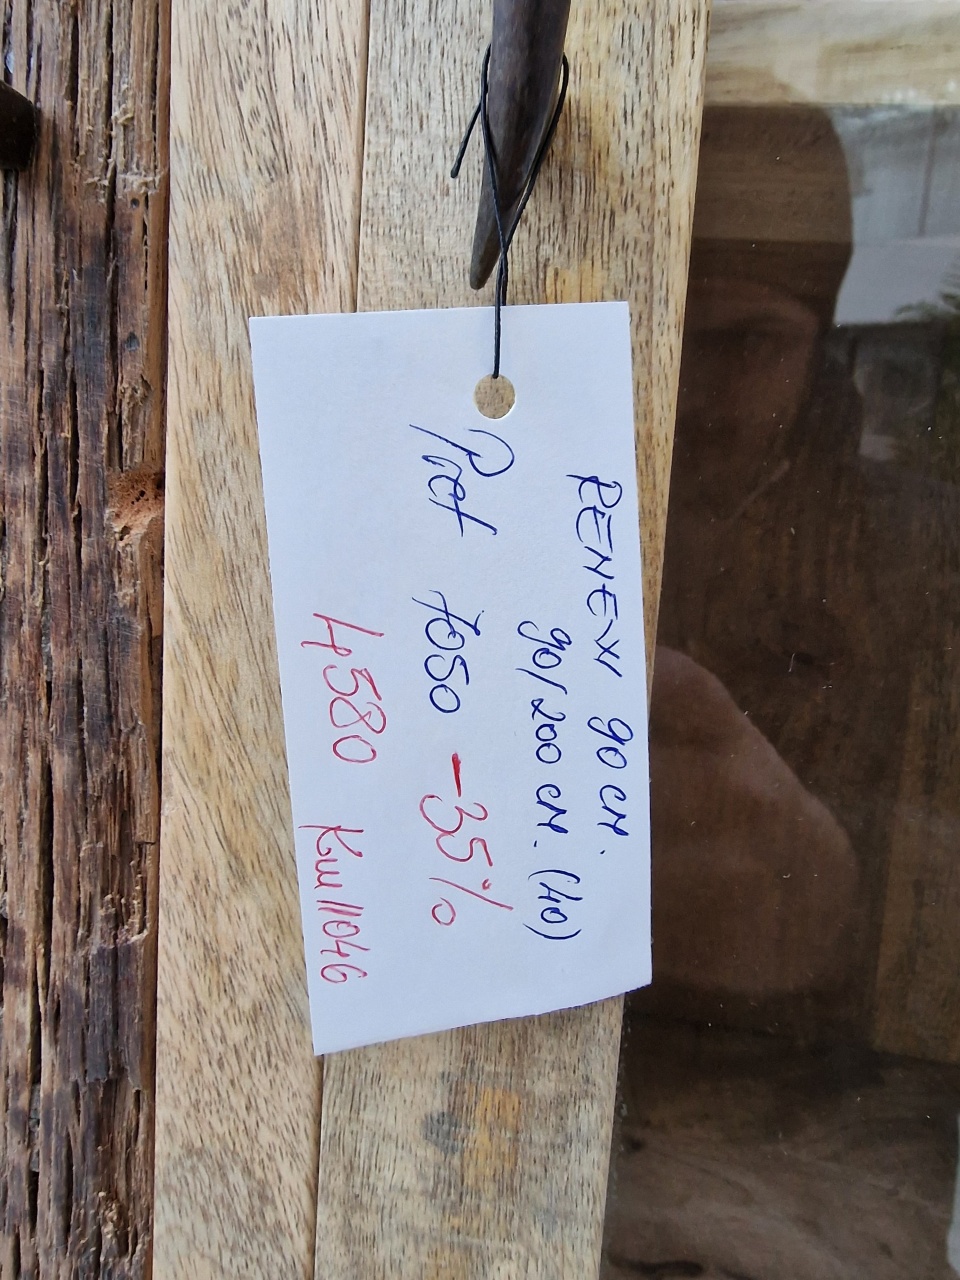 RENEW 90 cm.
90/200 cm. (40)
Pret 7050 -35%
4580 Kw11046